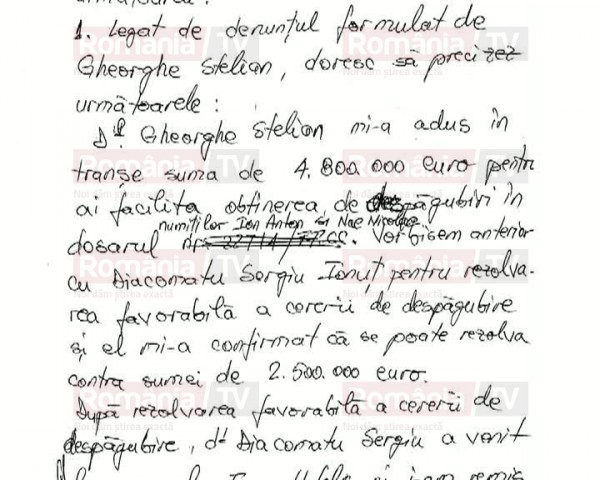 următoarele:
1. Legat de denunțul formulat de
Gheorghe Stelian, doresc să precizez
următoarele:
Dl. Gheorghe Stelian mi-a adus în
tranșe suma de 4.800.000 euro pentru
ai facilita obținerea de despăgubiri în
numiților Ion Anton și Nae Nicolae
dosarul nr. 22714/FF.CC. Vorbisem anterior
cu Diacomatu Sergiu Ionuț pentru rezolva-
rea favorabilă a cererii de despăgubire
și el mi-a confirmat că se poate rezolva
contra sumei de 2.500.000 euro.
După rezolvarea favorabilă a cererii de
despăgubire, dl Diacomatu Sergiu a venit
România TV
Noi dăm știrea exactă